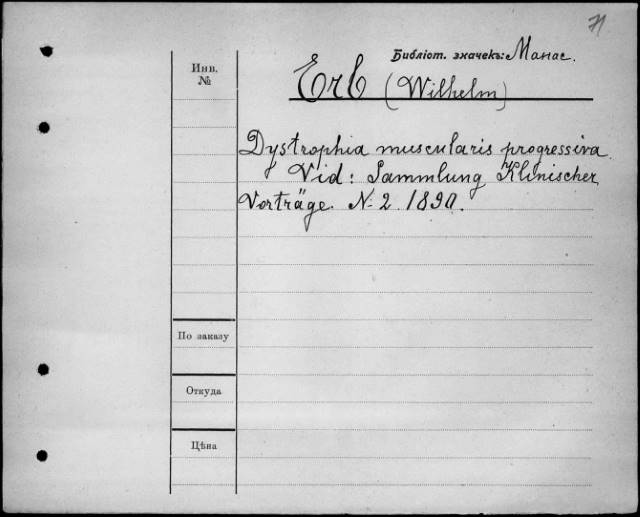 71
Библіот. значекъ: Манас.
Инв.
№
Erb (Wilhelm)
Dystrophia muscularis progressiva.
Vid: Sammlung Klinischer
Vorträge. N. 2. 1890.
По заказу
Откуда
Цѣна